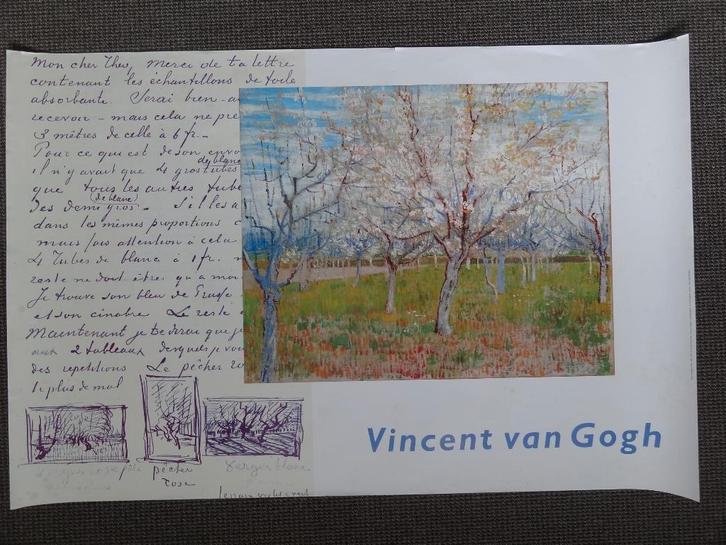 Mon cher Theo, Merci de ta lettre
contenant les échantillons de toile
absorbante. Serai bien-
recevoir - mais cela ne pre
3 mètres de celle à 6 fr. -
Pour ce qui est de son envo
de blanc
il n'y avait que 4 gros tubes
que tous les autres tube
(de blanc)
des demi gros. - S'il les a
dans les mêmes proportions c
mais fais attention à cela
4 Tubes de blanc à 1 fr.
reste ne doit être qu'a moi
Je trouve son bleu de Prusse
et son cinabre. Le reste
Maintenant je te dirai que je
aux 2 tableaux desquels je vou
des repetitions. Le pêcher ro
le plus de mal
pêcher
rose
Verger blanc
Vincent van Gogh